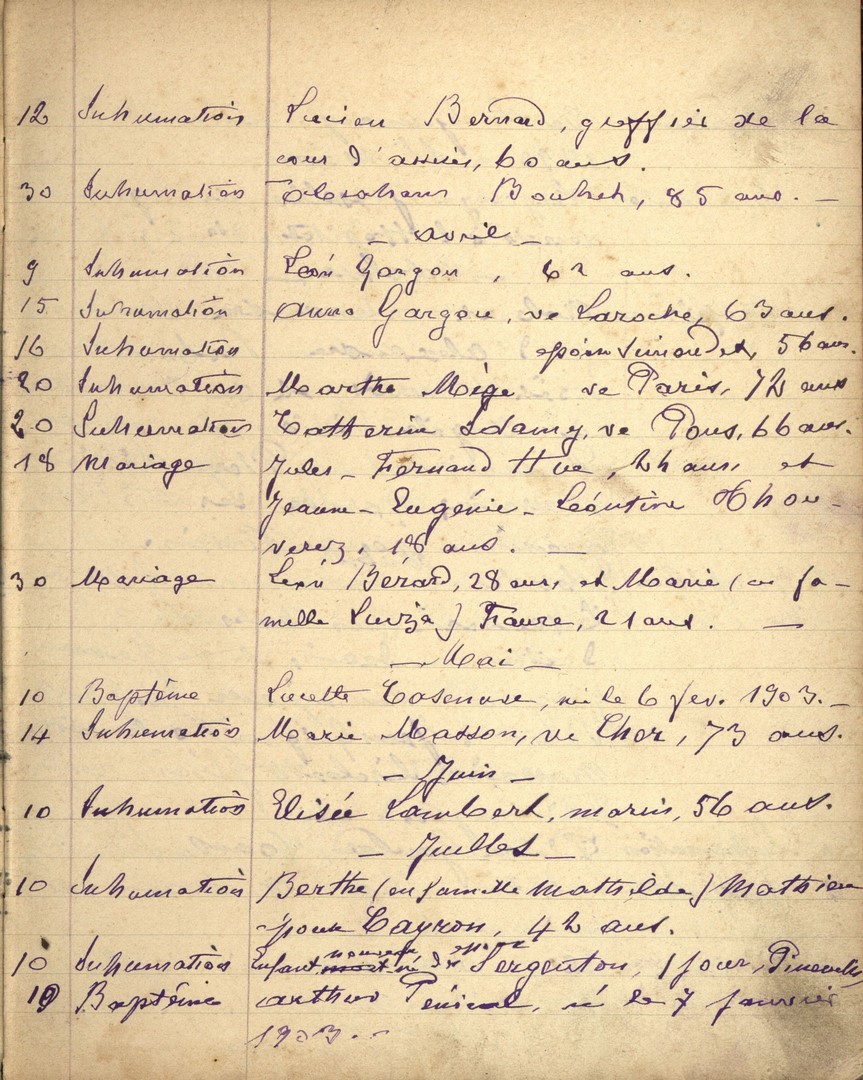 12 Inhumation Lucien Bernard, greffier de la
cour d'assises, 60 ans.
30 Inhumation Abraham 85 ans. —
— avril —
9 Inhumation Léon Gargon, 62 ans.
15 Inhumation Anna Gargon, ve Laroche, 63 ans.
16 Inhumation épouse 56 ans.
20 Inhumation Marthe Mège ve Paris, 72 ans
20 Inhumation Catherine ve Pous, 66 ans.
18 Mariage Jules-Fernand Hue, 24 ans, et
Jeanne-Eugénie-Léontine Thou-
verez, 18 ans. —
30 Mariage Léon Bérard, 28 ans, et Marie (en fa-
mille Louiza) Faure, 21 ans. —
— Mai —
10 Baptême Lucette né le 6 fev. 1903. —
14 Inhumation Marie Masson, ve Cher, 73 ans.
— Juin —
10 Inhumation Elisée Lambert, marin, 56 ans.
— Juillet —
10 Inhumation Berthe (en famille Mathilde) Mathieu
épouse Cayron, 42 ans.
10 Inhumation Enfant nouveau né des époux Sergenton, 1 jour,
10 Baptême Arthur né le 7 janvier
1903. —